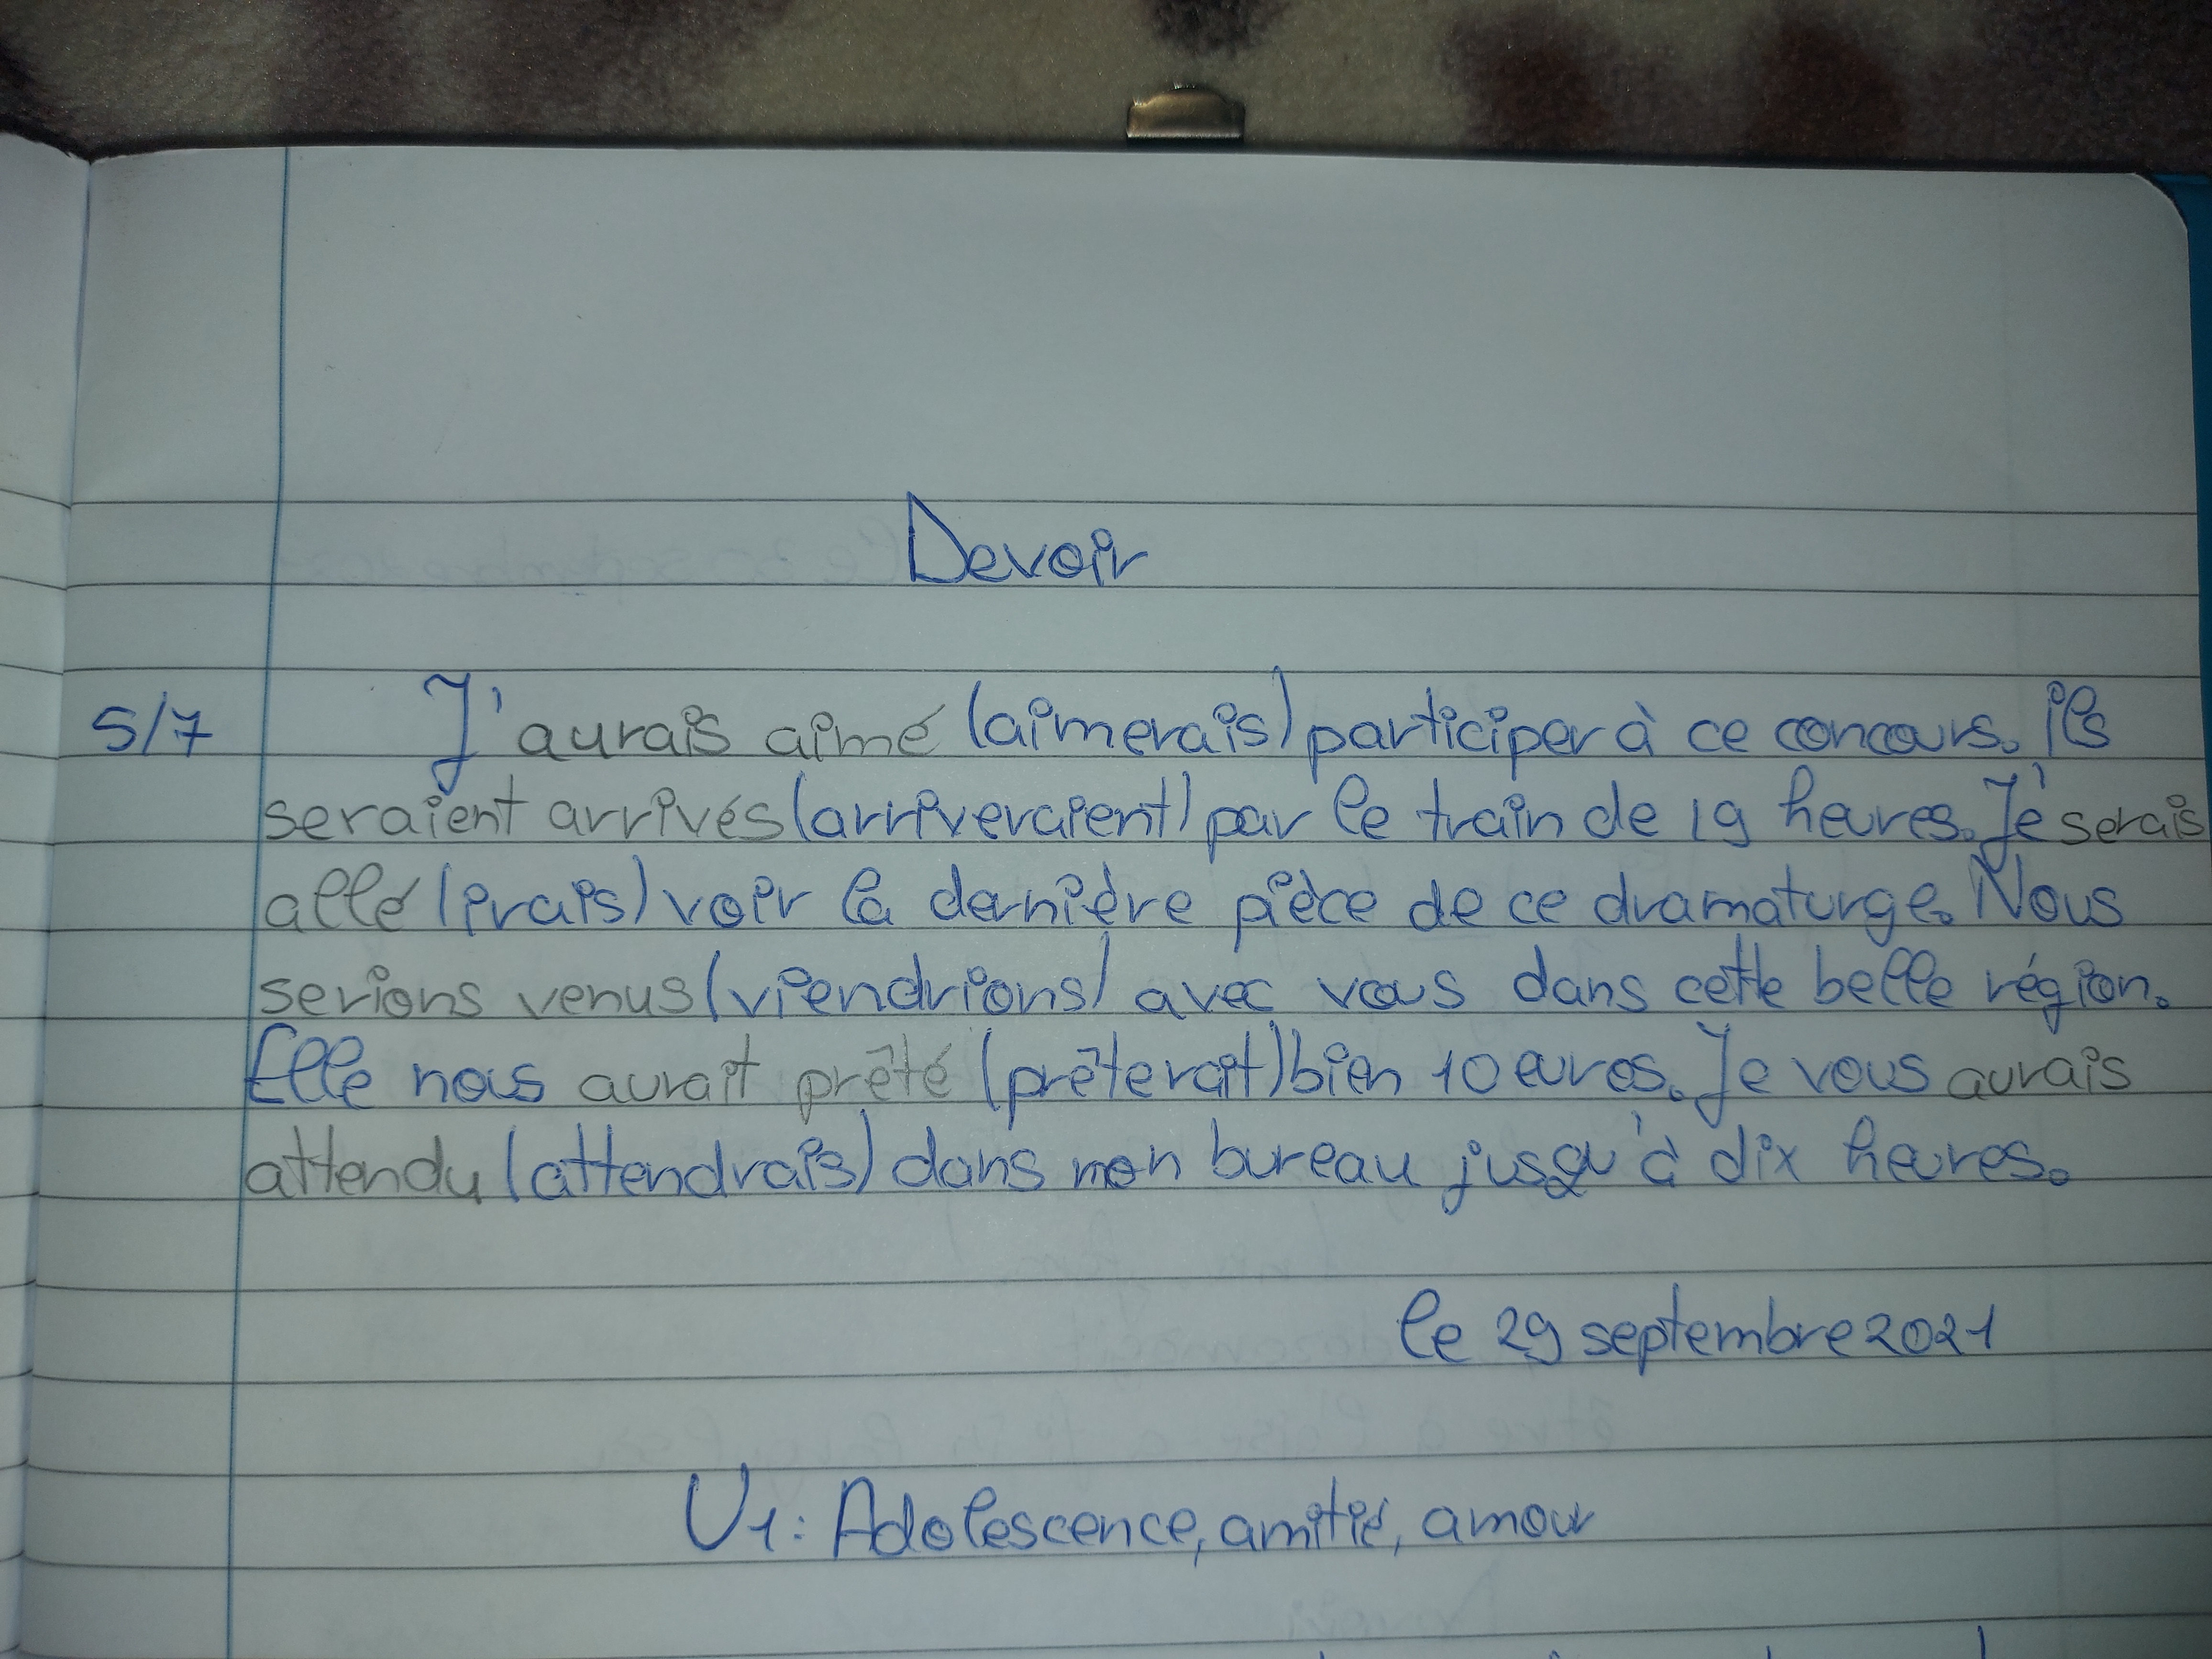 Devoir
5/7 J'aurais aimé (aimerais) participer à ce concours. ils
seraient arrivés (arriveraient) par le train de 19 heures. J'e serais
allé (irais) voir la dernière pièce de ce dramaturge. Nous
serions venus (viendrions) avec vous dans cette belle région.
Elle nous aurait prêté (prêterait) bien 10 euros. Je vous aurais
attendu (attendrais) dans mon bureau jusqu'à dix heures.
le 29 septembre 2021
U1: Adolescence, amitié, amour